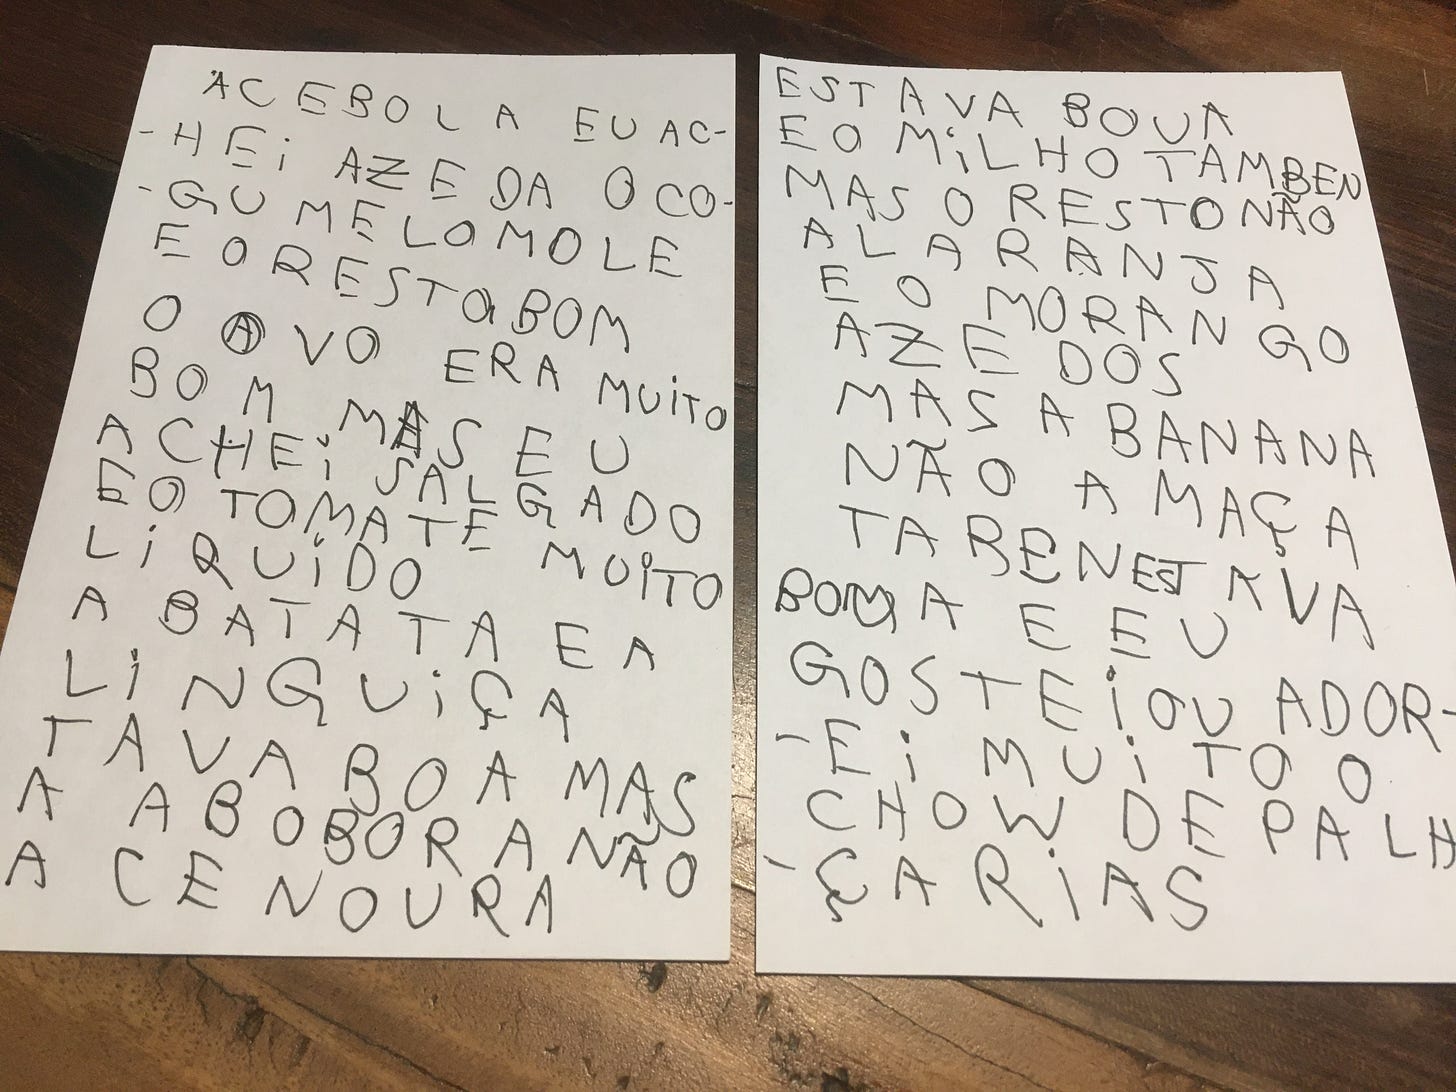 ACEBOLA EU AC-
-HEi AZEDA O CO-
-GUMELO MOLE
E O RESTO BOM
O OVO ERA MUiTO
BOM MAS EU
ACHEi SALGADO
E O TOMATE MUiTO
LiQUiDO
A BATATA E A
LiNGUiÇA
TAVA BOA MAS
A ABOBORA NÃO
A CENOURA
ESTAVA BOUA
E O MiLHO TAMBEN
MAS O RESTO NÃO
A LARANJA
E O MORANGO
AZEDOS
MAS A BANANA
NÃO A MAÇA
TABEN ESTAVA
BOMA E EU
GOSTEi OU ADOR-
-Ei MUiTO O
CHOW DE PALH
-ÇARiAS